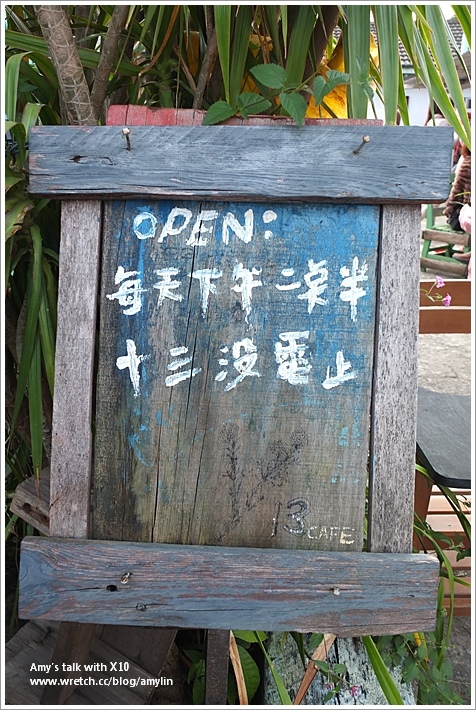 OPEN:
每天下午二桌半
十三沒電止
13 CAFE
Amy's talk with X10
www.wretch.cc/blog/amylin